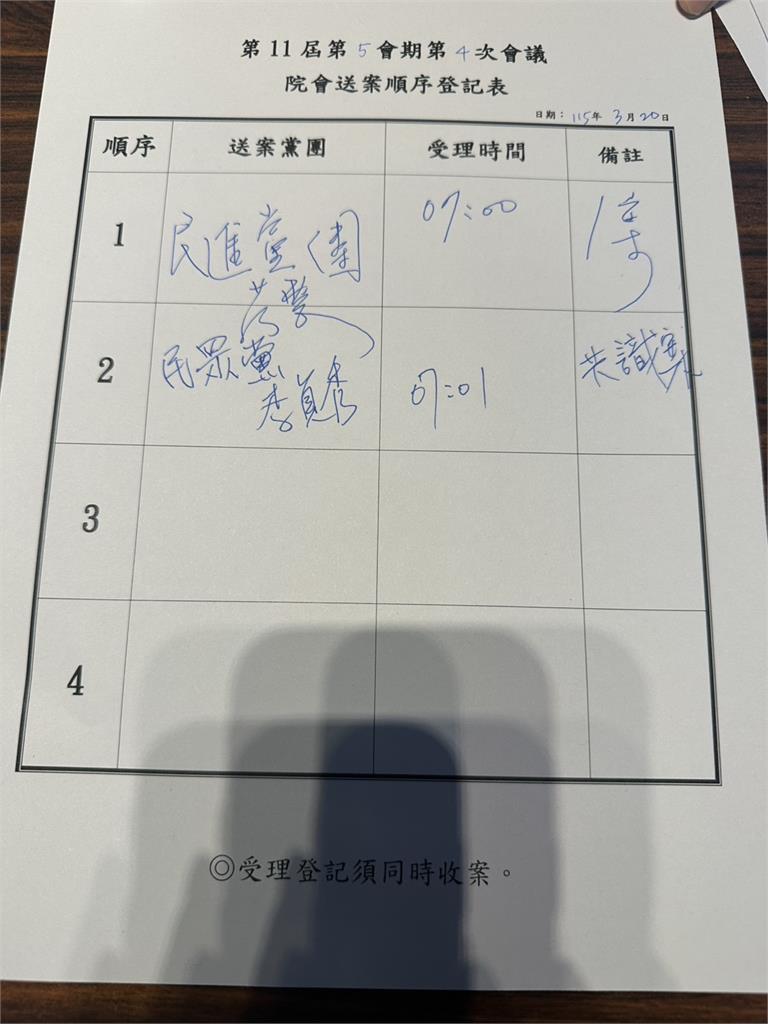 第11屆第5會期第4次會議
院會送案順序登記表
日期：115年3月20日
順序 送案黨團 受理時間 備註
1 民進黨團 07:00
2 民眾黨 李貞秀 07:01 共識案
3
4
◎受理登記須同時收案。